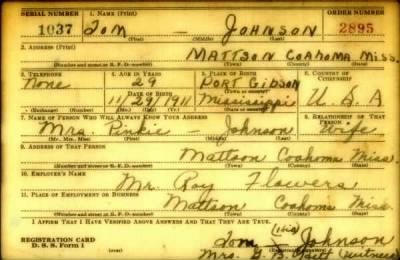 SERIAL NUMBER 1. NAME (Print) ORDER NUMBER
1037 TOM — JOHNSON 2895
(First) (Middle) (Last)
2. ADDRESS (Print)
MATTSON COAHOMA MISS.
(Number and street or R. F. D. number) (Town) (County) (State)
3. TELEPHONE 4. AGE IN YEARS 5. PLACE OF BIRTH 6. COUNTRY OF CITIZENSHIP
None 29 PORT GIBSON
DATE OF BIRTH (Town or county)
11/29/1911 Mississippi U. S. A
(Exchange) (Number) (Mo.) (Day) (Yr.) (State or country)
7. NAME OF PERSON WHO WILL ALWAYS KNOW YOUR ADDRESS 8. RELATIONSHIP OF THAT PERSON
Mrs. Pinkie — Johnson Wife
(Mr., Mrs., Miss) (First) (Middle) (Last)
9. ADDRESS OF THAT PERSON
Mattson Coahoma Miss.
(Number and street or R. F. D. number) (Town) (County) (State)
10. EMPLOYER'S NAME
Mr. Ray Flowers
11. PLACE OF EMPLOYMENT OR BUSINESS
Mattson Coahoma Miss.
(Number and street or R. F. D. number) (Town) (County) (State)
I AFFIRM THAT I HAVE VERIFIED ABOVE ANSWERS AND THAT THEY ARE TRUE.
REGISTRATION CARD
D. S. S. Form 1
Tom (his) Johnson
Mrs. G. B. (witness)